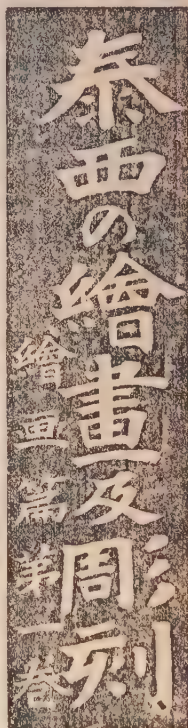 泰西の繪畫及彫刻
繪画篇第一巻